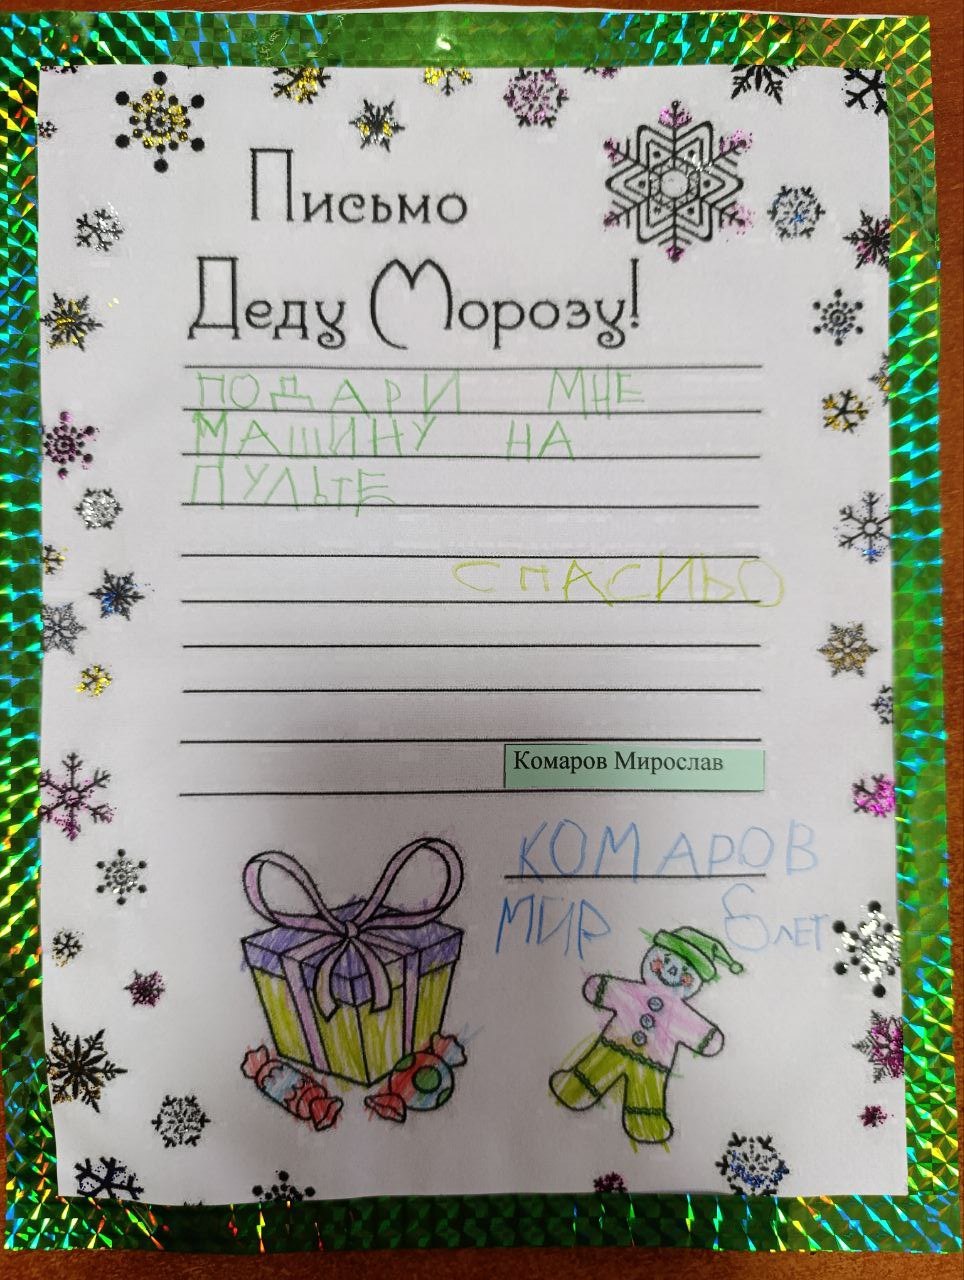 Письмо
Деду Морозу!
ПОДАРИ МНЕ
МАШИНУ НА
ПУЛЬТЕ
СПАСИБО
Комаров Мирослав
КОМАРОВ
МИР 6 ЛЕТ